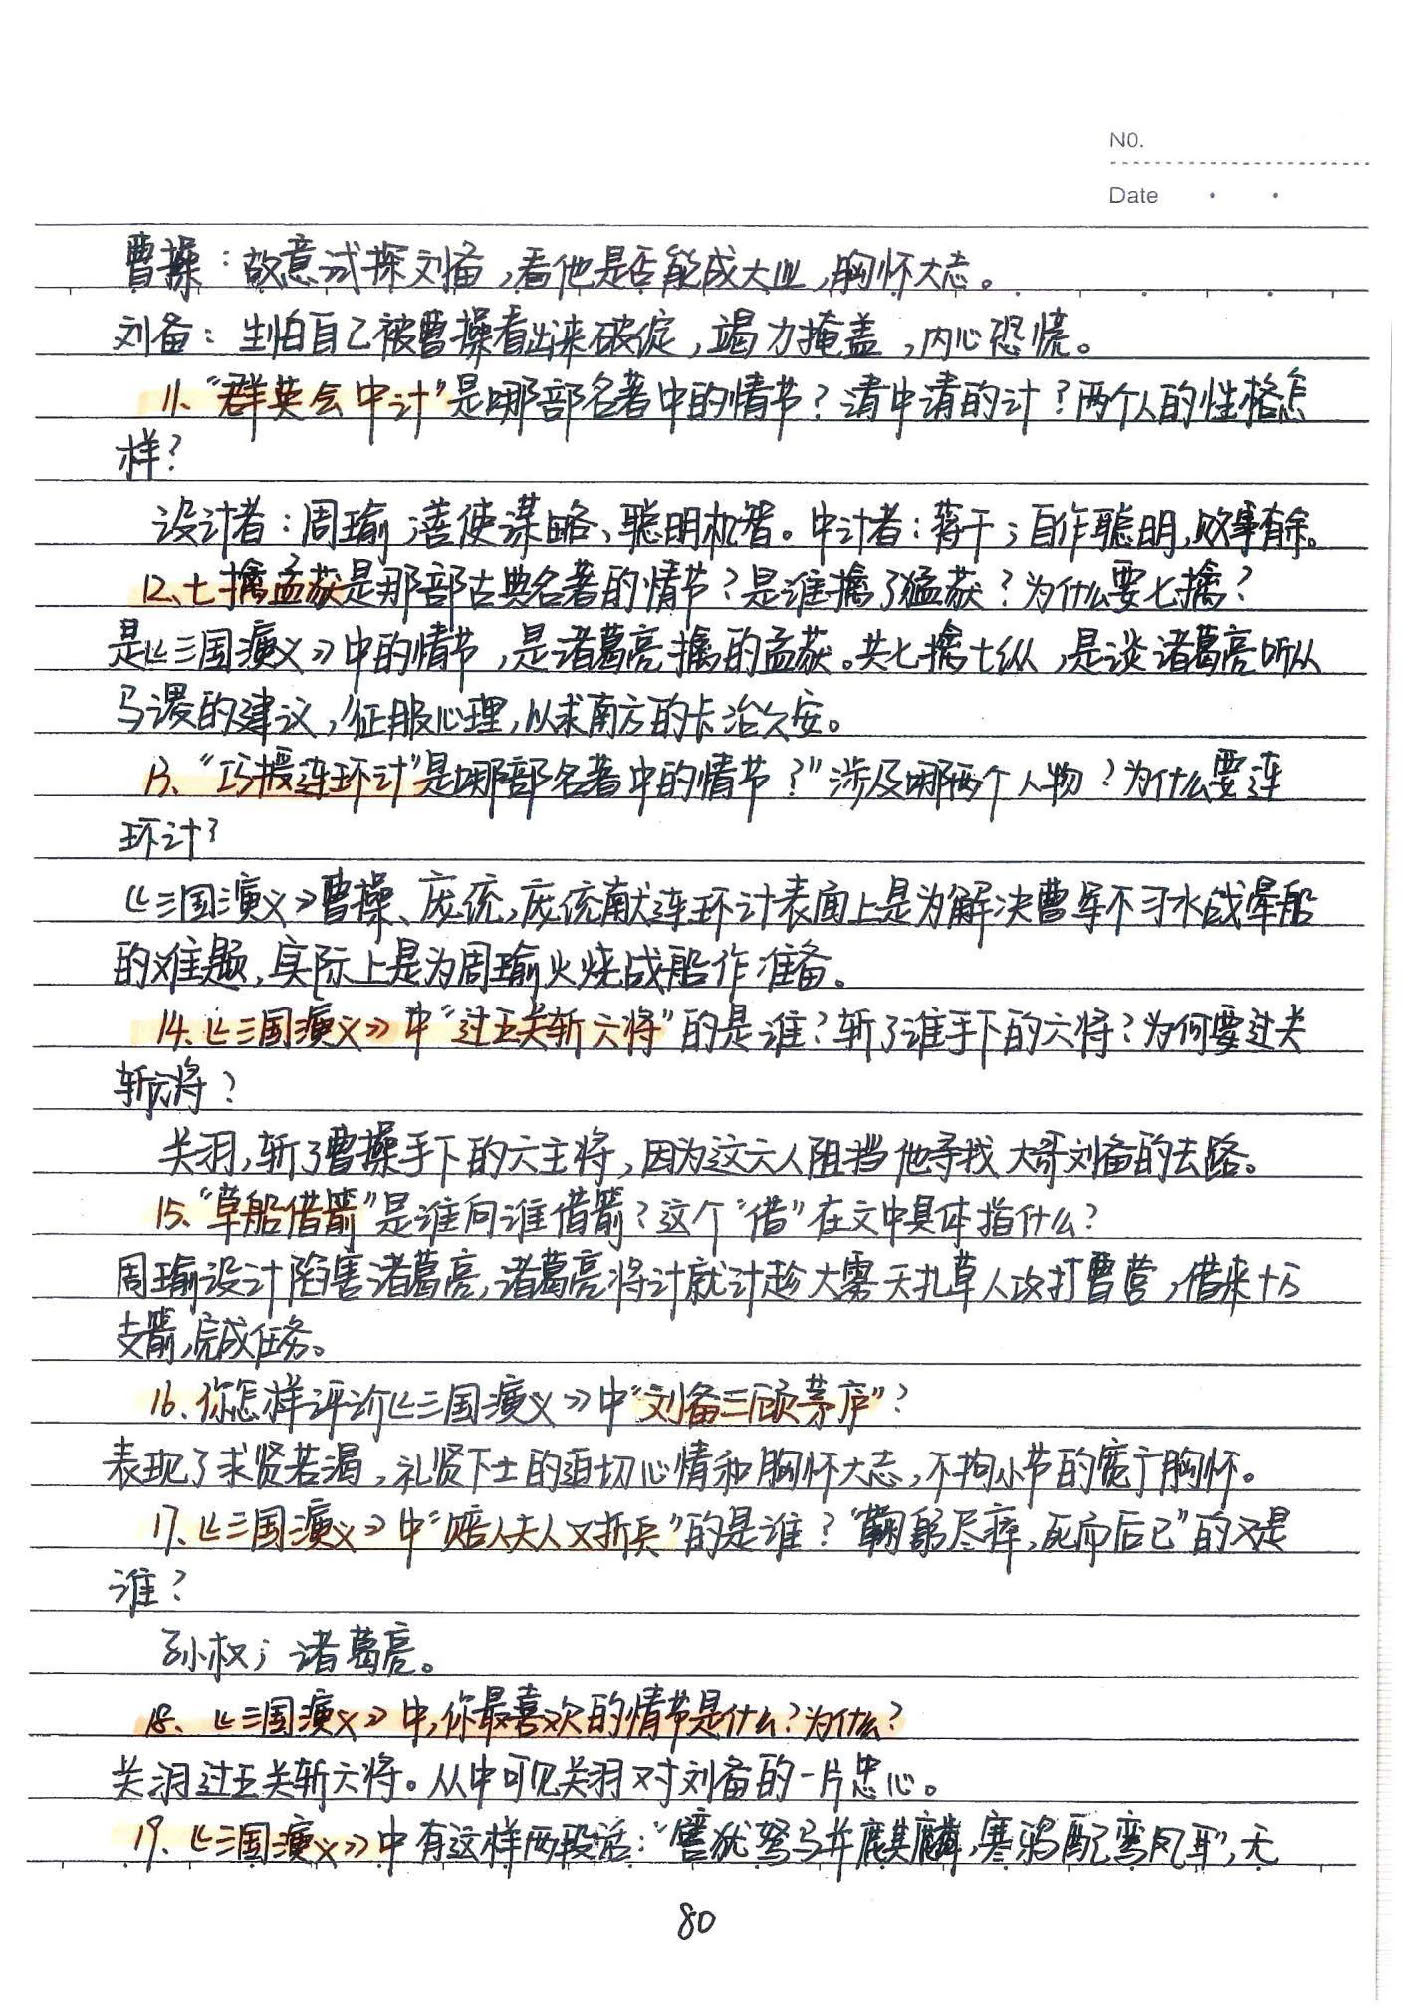 NO.
Date
曹操：故意试探刘备，看他是否能成大业，胸怀大志。
刘备：生怕自己被曹操看出来破绽，竭力掩盖，内心恐慌。
11、“群英会中计”是哪部名著中的情节？请中请的计？两个人的性格怎
样？
设计者：周瑜，善使谋略、聪明机智。中计者：蒋干；自作聪明，败事有余。
12、七擒孟获是那部古典名著的情节？是谁擒了猛获？为什么要七擒？
是《三国演义》中的情节，是诸葛亮擒的孟获。共七擒七纵，是谈诸葛亮听从
马谡的建议，征服心理，以求南方的长治久安。
13、“巧授连环计”是哪部名著中的情节？”涉及哪两个人物？为什么要连
环计？
《三国演义》曹操、庞统，庞统献连环计表面上是为解决曹军不习水战晕船
的难题，实际上是为周瑜火烧战船作准备。
14、《三国演义》中“过五关斩六将”的是谁？斩了谁手下的六将？为何要过关
斩六将？
关羽，斩了曹操手下的六主将，因为这六人阻挡他寻找大哥刘备的去路。
15、“草船借箭”是谁向谁借箭？这个“借”在文中具体指什么？
周瑜设计陷害诸葛亮，诸葛亮将计就计趁大雾天扎草人攻打曹营，借来十万
支箭，完成任务。
16、你怎样评价《三国演义》中“刘备三顾茅庐”？
表现了求贤若渴，礼贤下士的迫切心情和胸怀大志，不拘小节的宽广胸怀。
17、《三国演义》中“赔人夫人又折兵”的是谁？“鞠躬尽瘁，死而后已”的又是
谁？
孙权；诸葛亮。
18、《三国演义》中，你最喜欢的情节是什么？为什么？
关羽过五关斩六将。从中可见关羽对刘备的一片忠心。
19、《三国演义》中有这样两段话：“譬犹驽马并麒麟，寒鸦配鸾凤耳”，无
80